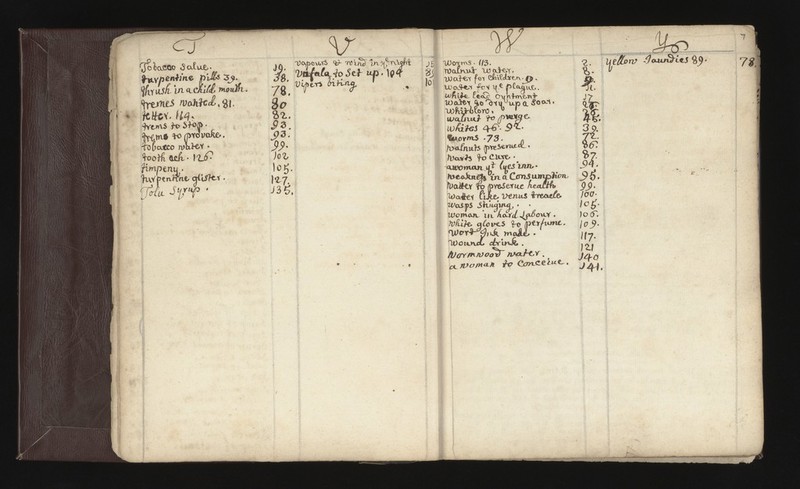 T
Tobacco salve. 19.
turpentine pills 39. 38.
thrush in a child mouth. 78.
tremes wanted. 81. 80
tetter. 114. 82.
trems to stop. 93.
trems to provoke. 93.
tobacco water. 99.
tooth ach. 126. 102
timpeny. 105.
turpentine glister. 127.
Tolu Syrup. 135.
V
vapours & wind in ye night
Uvfala to set up. 104
vipers biting 10
W
worms. 113. 2.
walnut water. 8.
water for children. 9.
water for ye plague.
white lead oyntment 17
water to dry up a soar.
whitblow.
walnut to purge 46.
whites 46. 92. 39.
worms. 73. 72.
walnuts preserved. 86.
warts to cure. 87.
a woman yt lyes inn. 94.
weakness in a Consumption 95.
watter to preserve health 99.
watter like venus treacle 100.
wasps stinging. 105.
woman in hard Labour. 106.
white gloves to perfume. 109.
wort Ink made. 117.
wound drink. 121
wormwood water. 140
a woman to conceive. 141.
Y
7
yellow Jaundies 89. 78